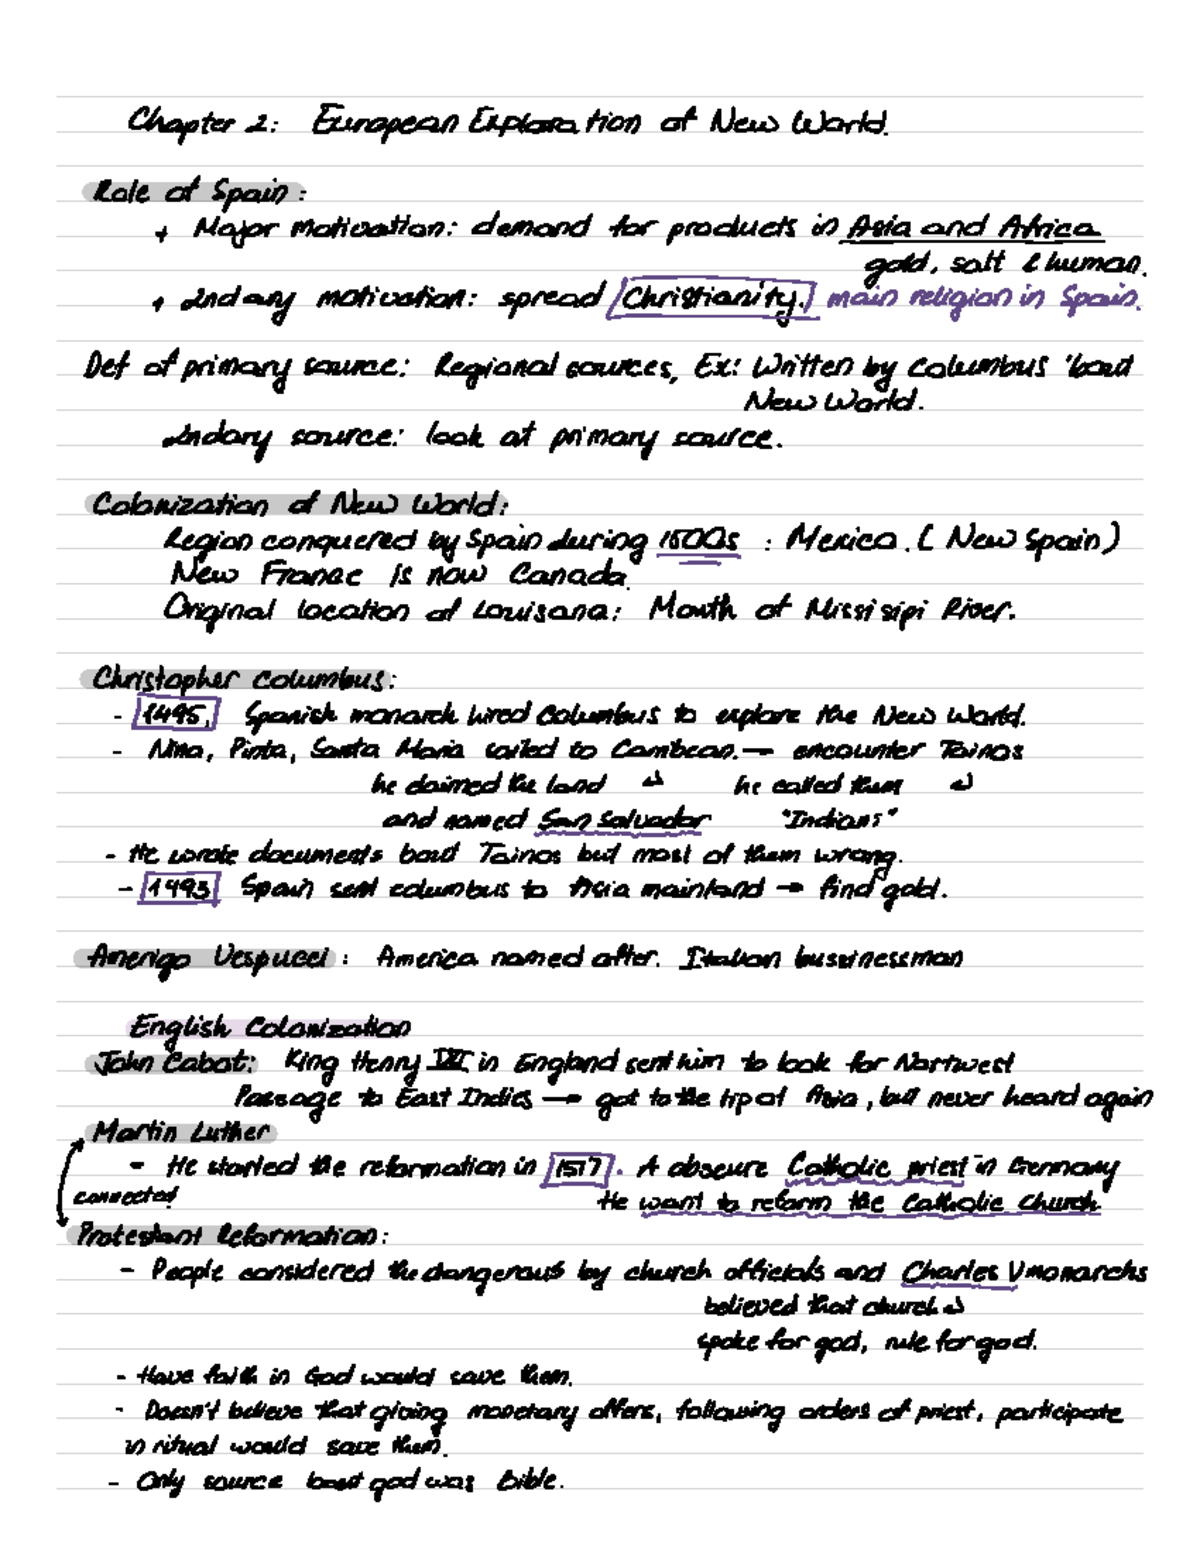 Chapter 2: European Exploration of New World.
Role of Spain:
+ Major motivation: demand for products in Asia and Africa
gold, salt & human.
+ 2ndary motivation: spread Christianity. main religion in Spain.
Def of primary source: Regional sources, Ex: Written by Columbus 'bout
New World.
2ndary source: look at primary source.
Colonization of New World:
Region conquered by Spain during 1500s : Mexico. (New Spain)
New France is now Canada.
Original location of Louisana: Mouth of Missisipi River.
Christopher Columbus:
- 1495, Spanish monarch hired Columbus to explore the New World.
- Nina, Pinta, Santa Maria sailed to Carribean. → encounter Tainos
he claimed the land ↲ he called them ↲
and named San Salvador "Indians"
- He wrote documents bout Tainos but most of them wrong.
- 1493 Spain sent columbus to Asia mainland → find gold.
Amerigo Vespucci: America named after. Italian bussinessman
English Colonization
John Cabot: King Henry VII in England sent him to look for Nortwest
Passage to East Indies → got to the tip of Asia, but never heard again
Martin Luther
- He started the reformation in 1517. A obscure Catholic priest in Germany
connected! He want to reform the Catholic Church
Protestant Reformation:
- People considered the dangerous by church officials and Charles V monarchs
believed that church ↲
spoke for god, rule for god.
- Have faith in God would save them.
- Doesn't believe that giving monetary offers, following orders of priest, participate
in ritual would save them.
- Only source bout god was Bible.